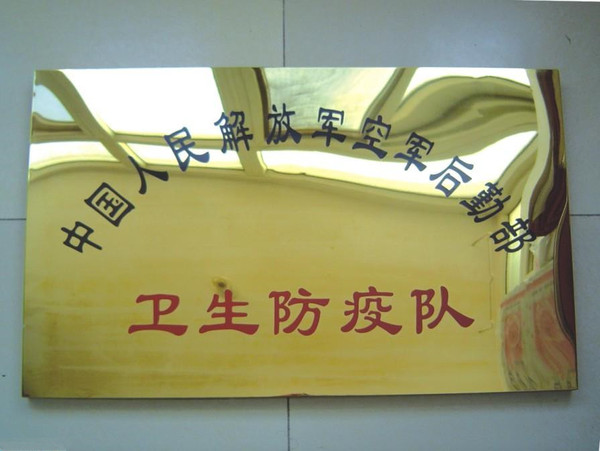 中国人民解放军空军后勤部
卫生防疫队